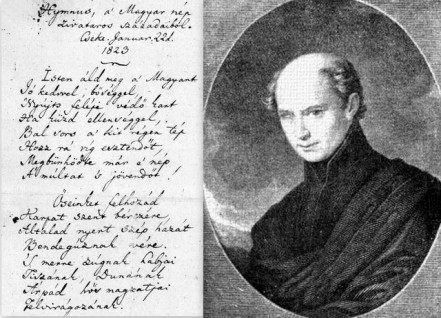 Hymnus, a' Magyar nép
zivataros századaiból.
Cseke. Januar. 22d.
1823
Isten áldd meg a' Magyart
Jó kedvvel, bőséggel,
Nyújts feléje védő kart
Ha küzd ellenséggel,
Bal sors a' kit régen tép
Hozz rá víg esztendőt,
Megbűnhődte már e' nép
A' múltat 's jövendőt!
Őseinket felhozád
Kárpát szent bérczére,
Általad nyert szép hazát
Bendegúznak vére.
'S merre zúgnak habjai
Tiszának, Dunának
Árpád hős magzatjai
Felvirágozának.